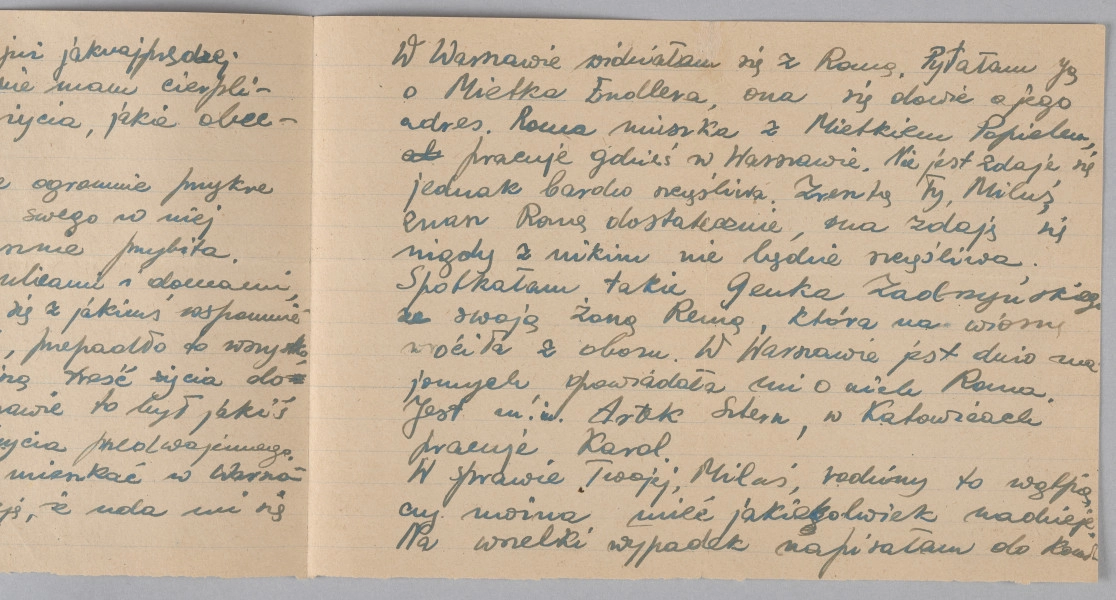 już jaknajprędzej
nie mam cierpli-
życia, jakie obec-
ogromnie przykre
swego w niej
przybita.
ulicami i domami,
się z jakimś wspomnie-
, przepadło to wszystko
treść życia do
to był jakiś
życia przedwojennego.
mieszkać w Warsza-
że uda mi się
W Warszawie widziałam się z Romą. Pytałam ją
o Mietka Endlera, ona się dowie o jego
adres. Roma mieszka z Mietkiem Popielem,
pracuje gdzieś w Warszawie. Nie jest zdaje się
jednak bardzo szczęśliwa. Zresztą Ty, Miluś,
znasz Romę dostatecznie, ona zdaję się
nigdy z nikim nie będzie szczęśliwa.
Spotkałam także Genka Zadrzyńskiego
ze swoją żoną Remą, która na wiosnę
wróciła z obozu. W Warszawie jest dużo zna-
jomych opowiadała mi o nich Roma.
Jest m. in. Artek Stern, w Katowicach
pracuje Karol.
W sprawie Twojej, Miluś, rodziny to wątpię,
czy można mieć jakiekolwiek nadzieje.
Na wszelki wypadek napisałam do